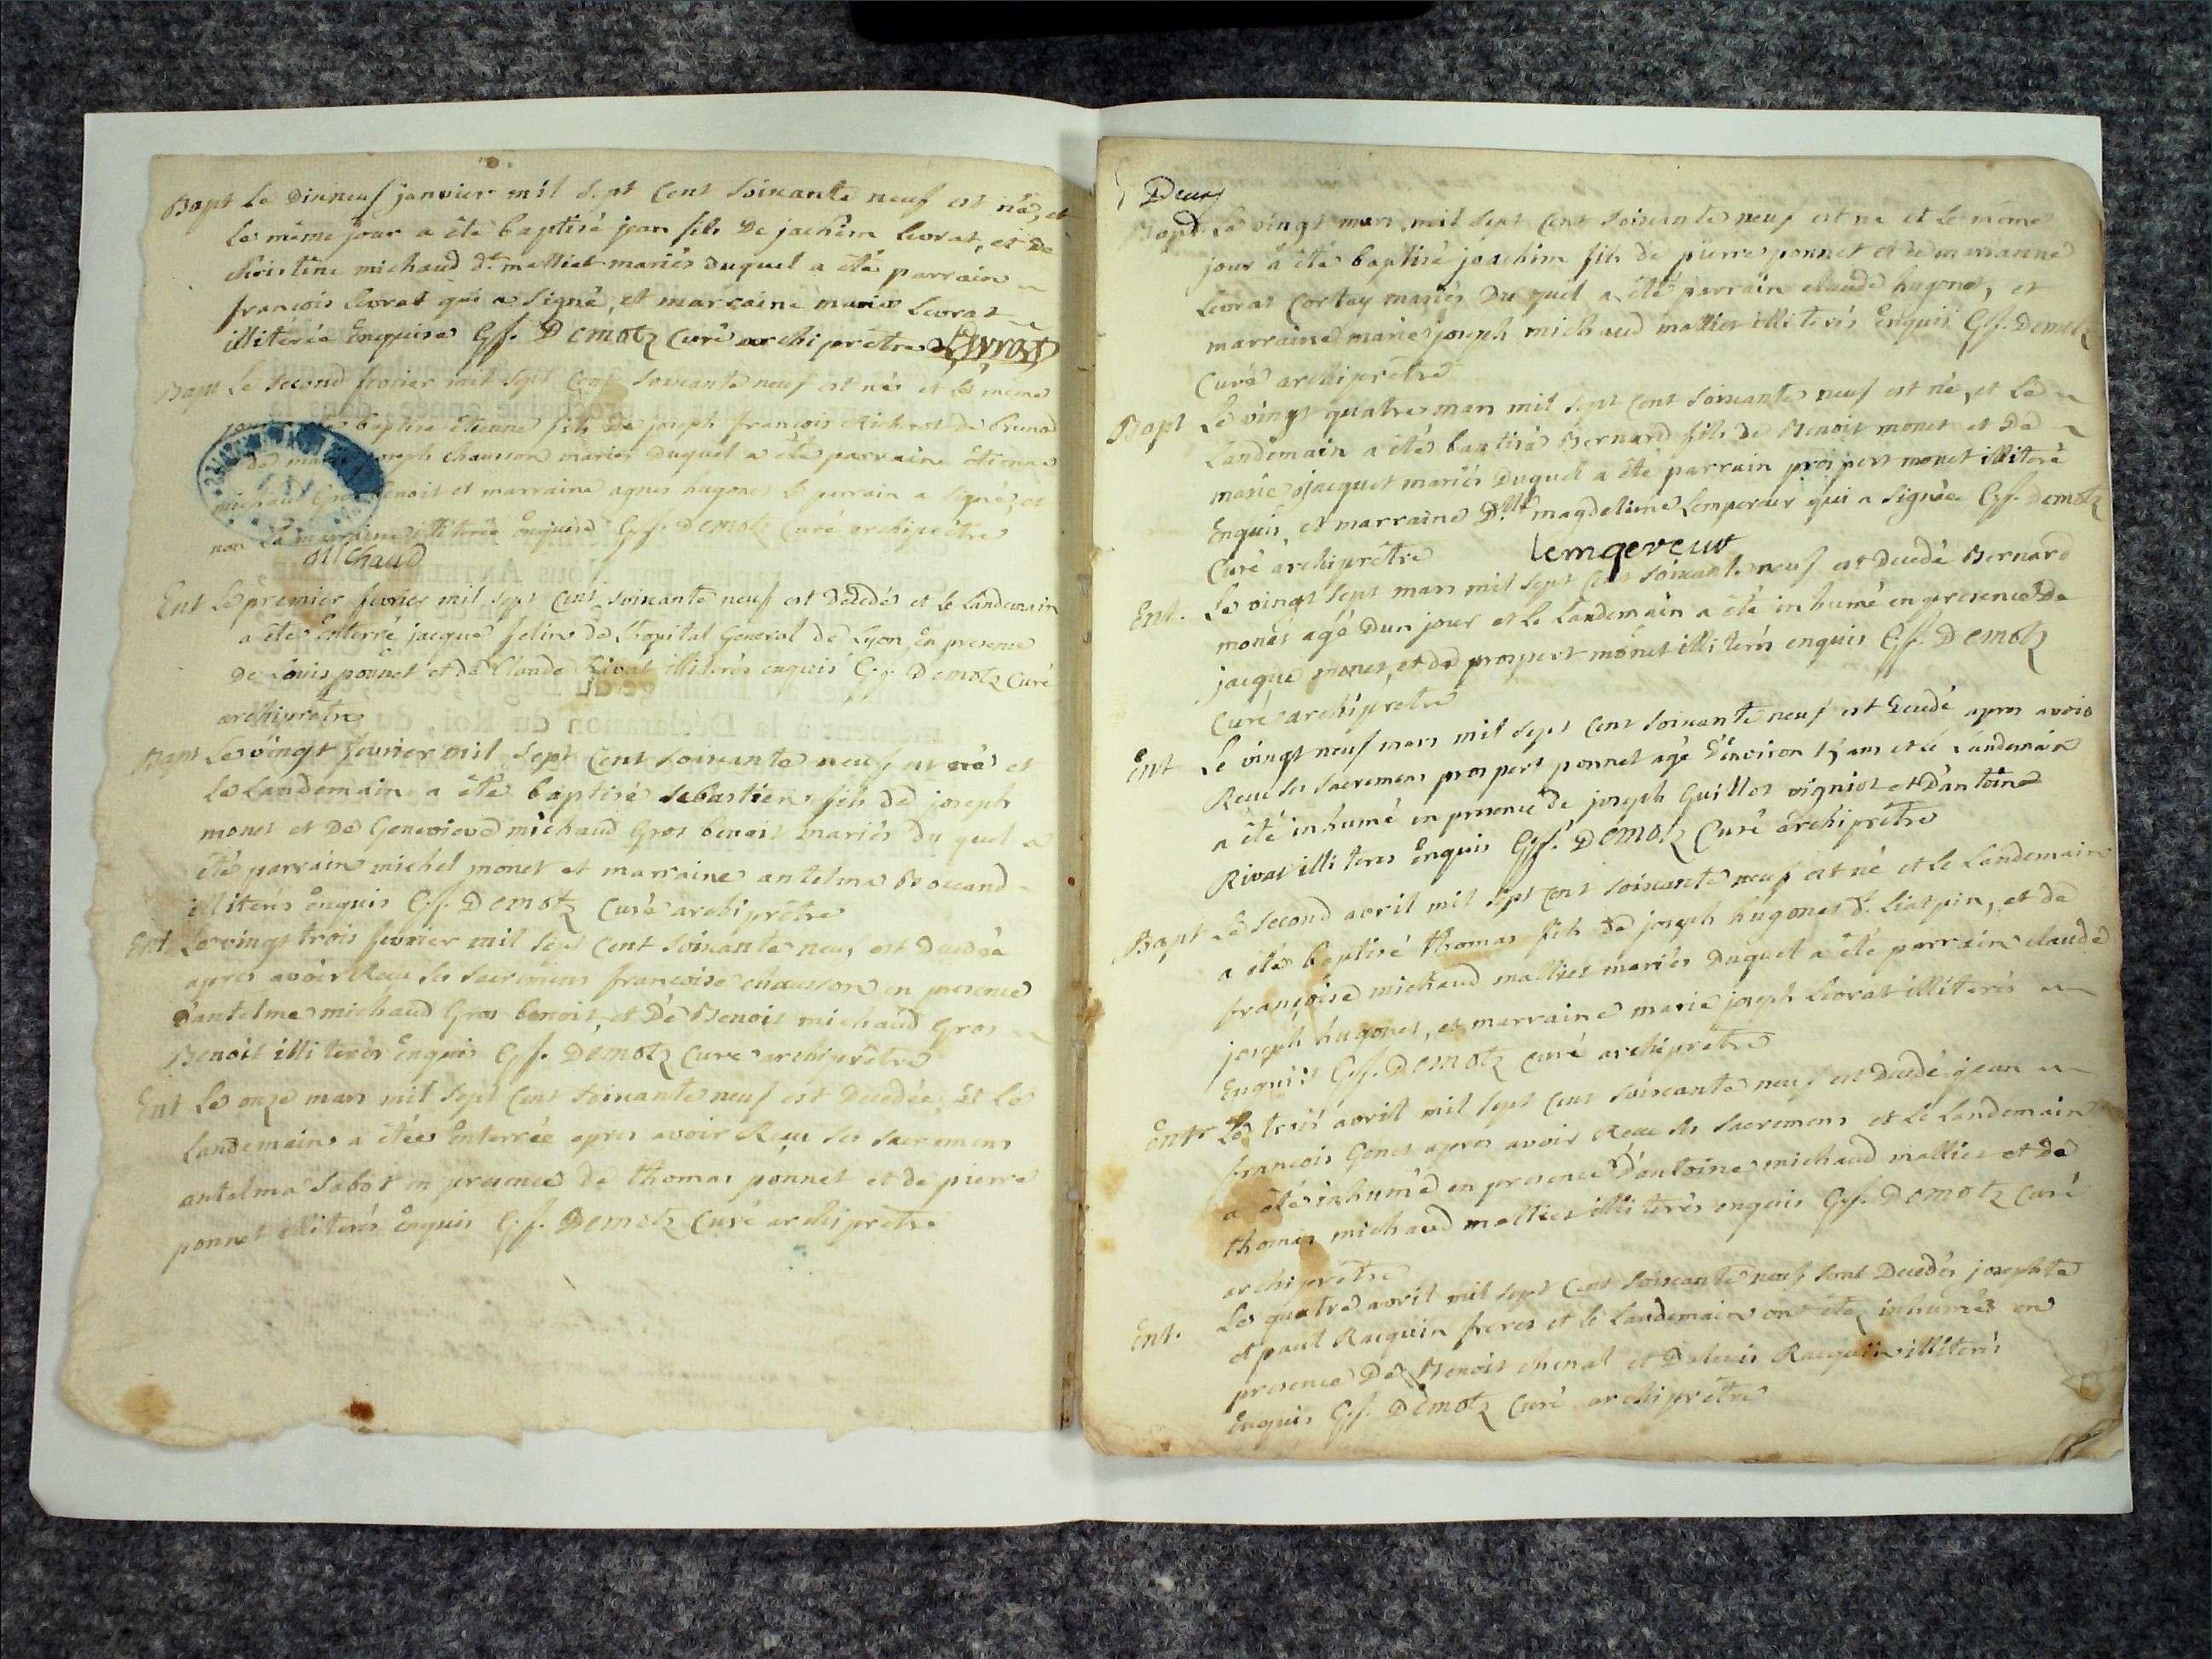 Bapt Le dixneuf janvier mil sept cent soixante neuf est né, et
le même jour a été baptisé jean fils de jachim levrat, et de
christine michaud dt malliet mariés duquel a été parrain
francois levrat qui a signé, et marraine marie levrat
illiterée enquise G.f. Demotz curé archiprêtre
Bapt Le second fevrier mil sept cent soixante neuf est né et le même
baptisé étienne fils de joseph francois de
de joseph chausson mariés duquel a été parrain étienne
michaud benoit et marraine agnes hugonet le parrain a signé, et
non la marraine illiterée enquise G.f. Demotz curé archiprêtre
Michaud
Ent Le premier fevrier mil sept cent soixante neuf est decedé et le landemain
a été enterré jacque felin de l'hopital General de Lyon en presence
de Louis ponnet et de Claude Rivat illiterés enquis G.f. Demotz curé
archiprêtre
Bapt Le vingt fevrier mil sept cent soixante neuf est né et
le landemain a été baptisé sebastien fils de joseph
monet et de Genevieve michaud Gros benoit mariés du quel a
été parrain michel monet et marraine antelma Boccand
illiterés enquis G.f. Demotz curé archiprêtre
Ent Le vingt trois fevrier mil sept cent soixante neuf est decedée
apres avoir Reçu ses sacremens francoise chausson en presence
d'antelme michaud Gros benoit, et de Benoit michaud Gros
Benoit illiterés enquis G.f. Demotz curé archiprêtre
Ent Le onze mars mil sept cent soixante neuf est decedée, et le
landemain a étée enterrée apres avoir Reçu ses sacremens
antelma Sabot en presence de thomas ponnet et de pierre
ponnet illiterés enquis G.f. Demotz curé archiprêtre
Deux
Bapt Le vingt mars mil sept cent soixante neuf est né et le même
jour a été baptisé joachim fils de pierre ponnet et de marianne
levrat Cortay mariés du quel a été parrain claude hugonet, et
marraine marie joseph michaud malliet illiterés enquis G.f. Demotz
curé archiprêtre
Bapt Le vingt quatre mars mil sept cent soixante neuf est né, et le
landemain a été baptisé Bernard fils de Benoit monet et de
marie jacquet mariés duquel a été parrain prospert monet illiteré
enquis, et marraine Dlle magdeleine Lempereur qui a signée G.f. Demotz
curé archiprêtre Lempereur
Ent. Le vingt sept mars mil sept cent soixante neuf est decedé Bernard
monet agé d'un jour et le landemain a été inhumé en presence de
jacque monet, et de prospert monet illiterés enquis G.f. Demotz
curé archiprêtre
Ent Le vingt neuf mars mil sept cent soixante neuf est decedé apres avoir
Reçu ses sacremens prospert ponnet agé d'environ ans et le landemain
a été inhumé en presence de joseph Guillot vigniot et d'antoine
Rivat illiteres enquis G.f. Demotz curé archiprêtre
Bapt Le second avril mil sept cent soixante neuf est né et le landemain
a été baptisé thomas fils de joseph hugonet dt Liatpin, et de
françoise michaud malliet mariés duquel a été parrain claude
joseph hugonet, et marraine marie joseph levrat illiterés
enquis G.f. Demotz curé archiprêtre
Ent Le trois avril mil sept cent soixante neuf est decedé jean
francois Genet apres avoir Reçu ses sacremens et le landemain
a été inhumé en presence d'antoine michaud malliet et de
thomas michaud malliet illiterés enquis G.f. Demotz curé
archiprêtre
Ent. Le quatre avril mil sept cent soixante neuf sont decedés josephte
et paul Racquin freres et le landemain ont étéz inhumés en
presence de Benoit chenat et d'alexis Racquin illiterés
enquis G.f. Demotz curé archiprêtre